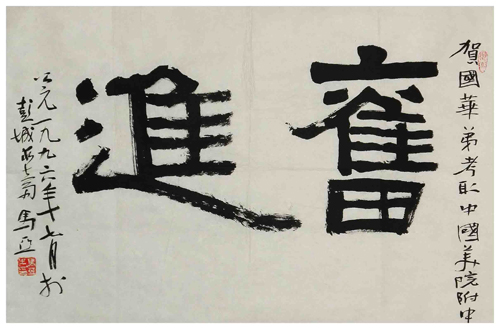 賀國華弟考取中國美院附中
奮進
公元一九九六年十月於
彭城馬亞